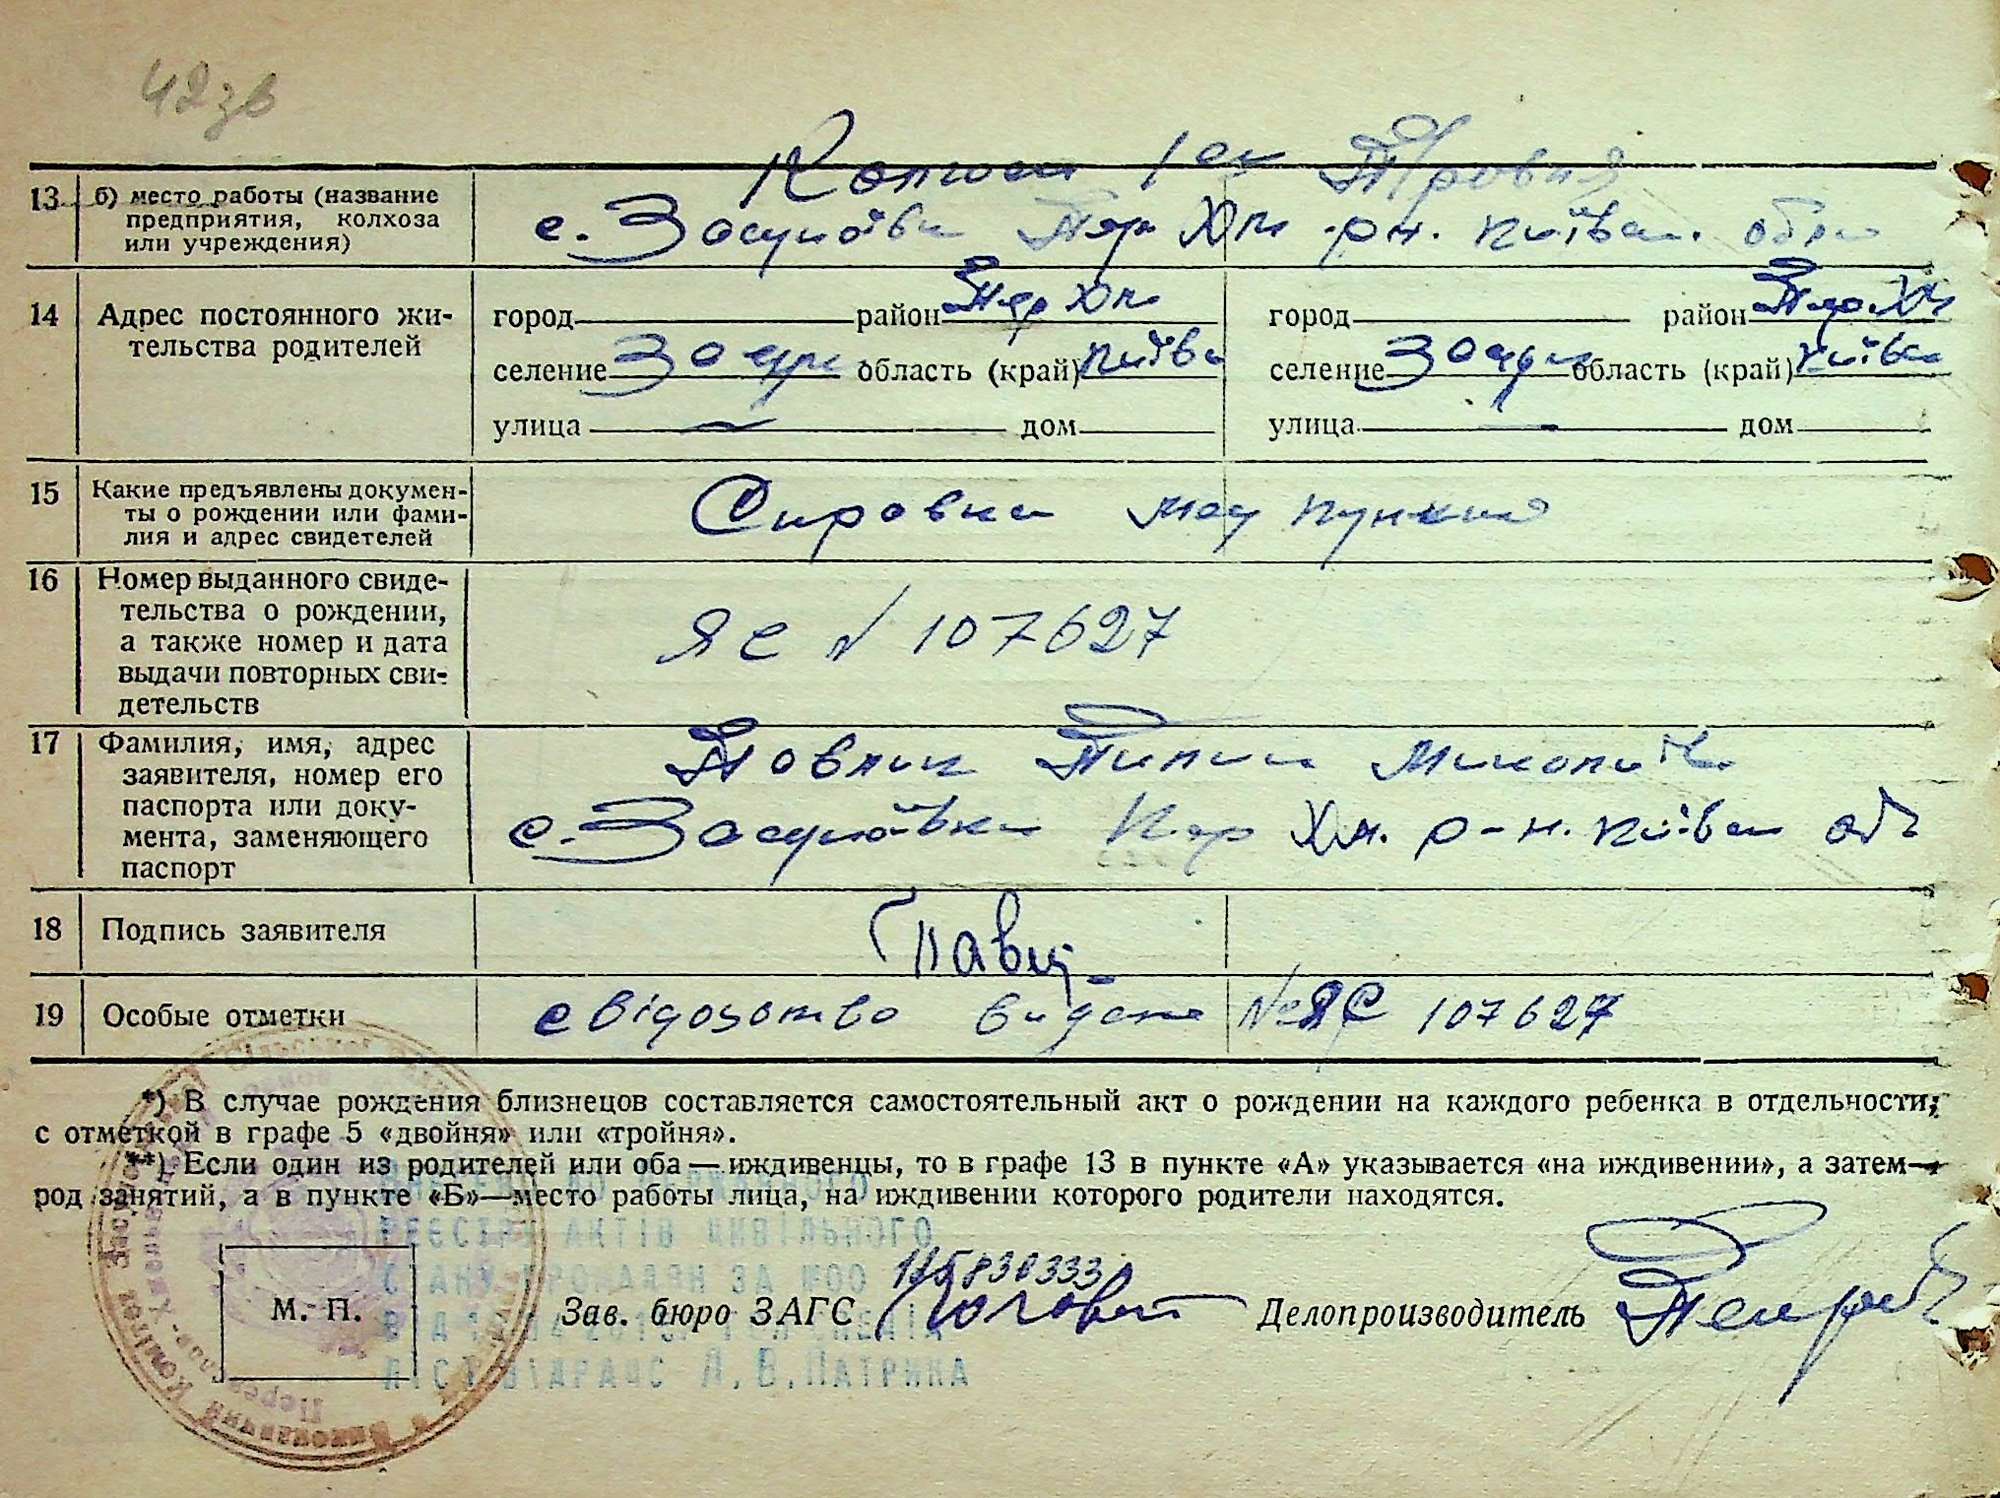 42зв
13 б) место работы (название
предприятия, колхоза
или учреждения)
1го Травня
с. Засупоївка Пер Хм р-н. Київськ. обл
14 Адрес постоянного жи-
тельства родителей
город район Пер Хм город район Пер. Хм
селение Засуп область (край) Київ селение Засуп область (край) Київ
улица дом улица дом
15 Какие предъявлены докумен-
ты о рождении или фами-
лия и адрес свидетелей
Справка мед пункта
16 Номер выданного свиде-
тельства о рождении,
а также номер и дата
выдачи повторных сви-
детельств
ЯС № 107627
17 Фамилия, имя, адрес
заявителя, номер его
паспорта или доку-
мента, заменяющего
паспорт
Павлик
с. Засупоївка Пер Хм. р-н. Київськ обл
18 Подпись заявителя
19 Особые отметки свідоцтво видане № ЯС 107627
*) В случае рождения близнецов составляется самостоятельный акт о рождении на каждого ребенка в отдельности,
с отметкой в графе 5 «двойня» или «тройня».
**) Если один из родителей или оба — иждивенцы, то в графе 13 в пункте «А» указывается «на иждивении», а затем—
род занятий, а в пункте «Б»—место работы лица, на иждивении которого родители находятся.
ДЕРЖАВНОГО
РЕЄСТРУ АКТІВ ЦИВІЛЬНОГО
СТАНУ ГРОМАДЯН ЗА №00
М. П. Зав. бюро ЗАГС Делопроизводитель
ВІДРАЦС Л. В. ПАТРИКА